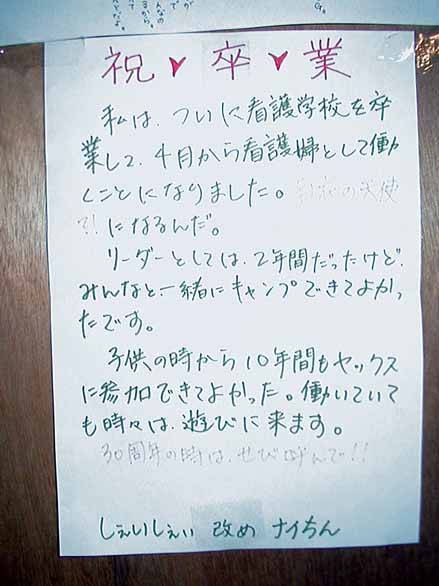 祝♥卒♥業
私は、ついに看護学校を卒
業して、4月から看護婦として働
くことになりました。 の天使
?!になるんだ。
リーダーとしては、2年間だったけど、
みんなと、一緒にキャンプできてよかっ
たです。
子供の時から10年間もヤックス
に参加できてよかった。働いていて
も時々は、遊びに来ます。
30周年の時は、ぜひ呼んで!!
しぇいしぇい 改め ナイちん